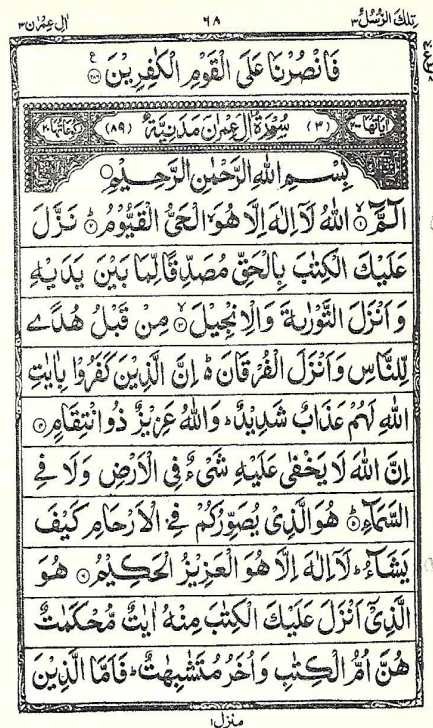 تِلْكَ الرُّسُلُ ٣ ٦٨ اٰل عِمْرٰن ٣
فَانْصُرْنَا عَلَى الْقَوْمِ الْكٰفِرِيْنَ
اٰيَاتُهَا ٢٠٠ (٣) سُوْرَةُ اٰلِ عِمْرٰنَ مَدَنِيَّةٌ (٨٩) رُكُوْعَاتُهَا ٢٠
بِسْمِ اللّٰهِ الرَّحْمٰنِ الرَّحِيْمِ
الٓمّٓ ۙ﴿١﴾ اللّٰهُ لَاۤ اِلٰهَ اِلَّا هُوَ ۙ الْحَيُّ الْقَيُّوْمُ ؕ﴿٢﴾ نَزَّلَ
عَلَيْكَ الْكِتٰبَ بِالْحَقِّ مُصَدِّقًا لِّمَا بَيْنَ يَدَيْهِ
وَاَنْزَلَ التَّوْرٰىةَ وَالْاِنْجِيْلَ ۙ﴿٣﴾ مِنْ قَبْلُ هُدًى
لِّلنَّاسِ وَاَنْزَلَ الْفُرْقَانَ ؕ۬ اِنَّ الَّذِيْنَ كَفَرُوْا بِاٰيٰتِ
اللّٰهِ لَهُمْ عَذَابٌ شَدِيْدٌ ؕ وَاللّٰهُ عَزِيْزٌ ذُو انْتِقَامٍ ﴿٤﴾
اِنَّ اللّٰهَ لَا يَخْفٰى عَلَيْهِ شَىْءٌ فِى الْاَرْضِ وَلَا فِى
السَّمَآءِ ؕ﴿٥﴾ هُوَ الَّذِىْ يُصَوِّرُكُمْ فِى الْاَرْحَامِ كَيْفَ
يَشَآءُ ؕ لَاۤ اِلٰهَ اِلَّا هُوَ الْعَزِيْزُ الْحَكِيْمُ ﴿٦﴾ هُوَ
الَّذِىْۤ اَنْزَلَ عَلَيْكَ الْكِتٰبَ مِنْهُ اٰيٰتٌ مُّحْكَمٰتٌ
هُنَّ اُمُّ الْكِتٰبِ وَاُخَرُ مُتَشٰبِهٰتٌ ؕ فَاَمَّا الَّذِيْنَ
منزل ١